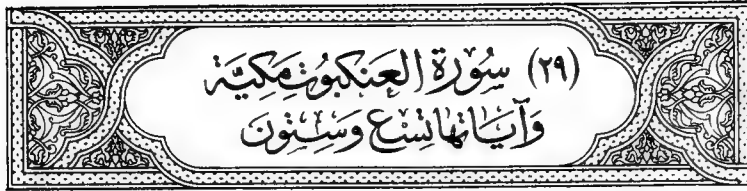 (٢٩) سُورَةُ العَنكبُوتِ مَكِيَّة
وَآيَاتُهَا تِسْعٌ وَسِتُّونَ